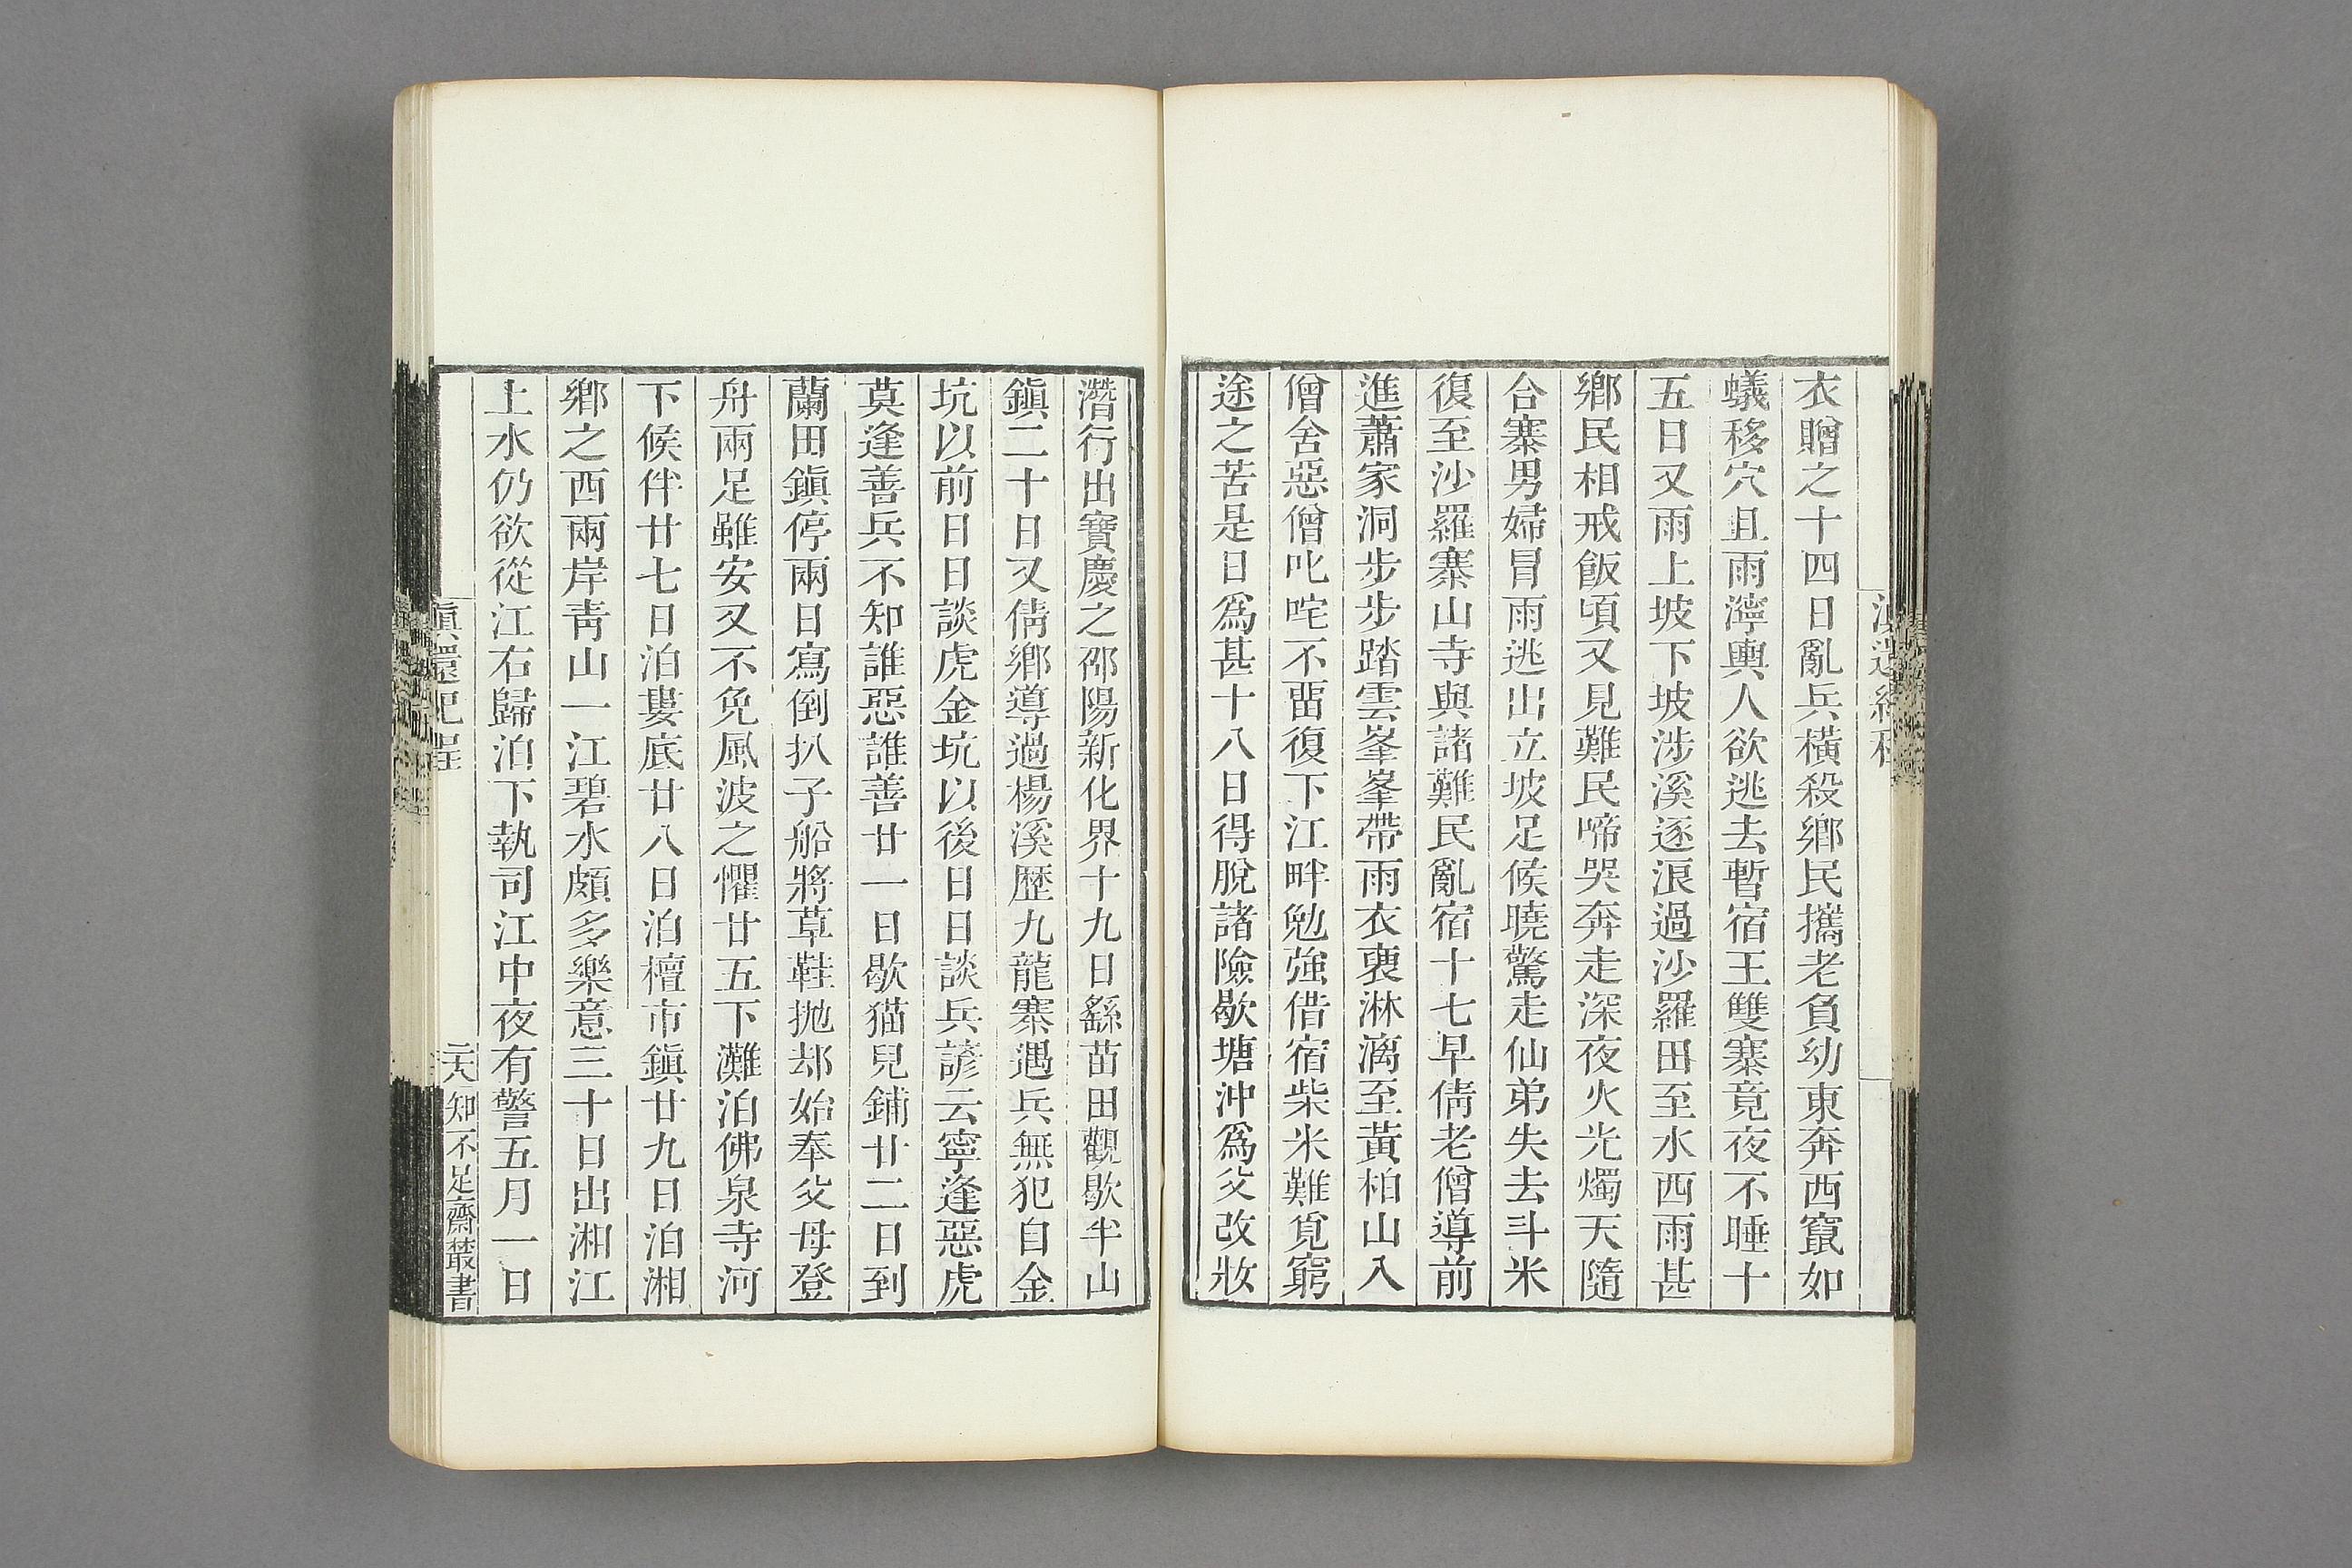 衣贈之十四日亂兵橫殺鄉民攜老負幼東奔西竄如
蟻移穴且雨濘輿人欲逃去暫宿王雙寨竟夜不睡十
五日又雨上坡下坡涉溪逐浪過沙羅田至水西雨甚
鄉民相戒飯頃又見難民啼哭奔走深夜火光燭天隨
合寨男婦冒雨逃出立坡足候曉驚走仙弟失去斗米
復至沙羅寨山寺與諸難民亂宿十七早倩老僧導前
進蕭家洞步步踏雲峯峯帶雨衣裏淋漓至黃柏山入
僧舍惡僧叱咤不畱復下江畔勉強借宿柴米難覓窮
途之苦是日爲甚十八日得脫諸險歇塘沖爲父改妝
潛行出寶慶之邵陽新化界十九日繇苗田觀歇半山
鎭二十日又倩鄉導過楊溪歷九龍寨遇兵無犯自金
坑以前日日談虎金坑以後日日談兵諺云寧逢惡虎
莫逢善兵不知誰惡誰善廿一日歇猫兒鋪廿二日到
蘭田鎭停兩日寫倒扒子船將草鞋拋却始奉父母登
舟兩足雖安又不免風波之懼廿五下灘泊佛泉寺河
下候伴廿七日泊婁底廿八日泊檀市鎭廿九日泊湘
鄉之西兩岸靑山一江碧水頗多樂意三十日出湘江
上水仍欲從江右歸泊下執司江中夜有警五月一日
滇還紀程
二六
知不足齋叢書